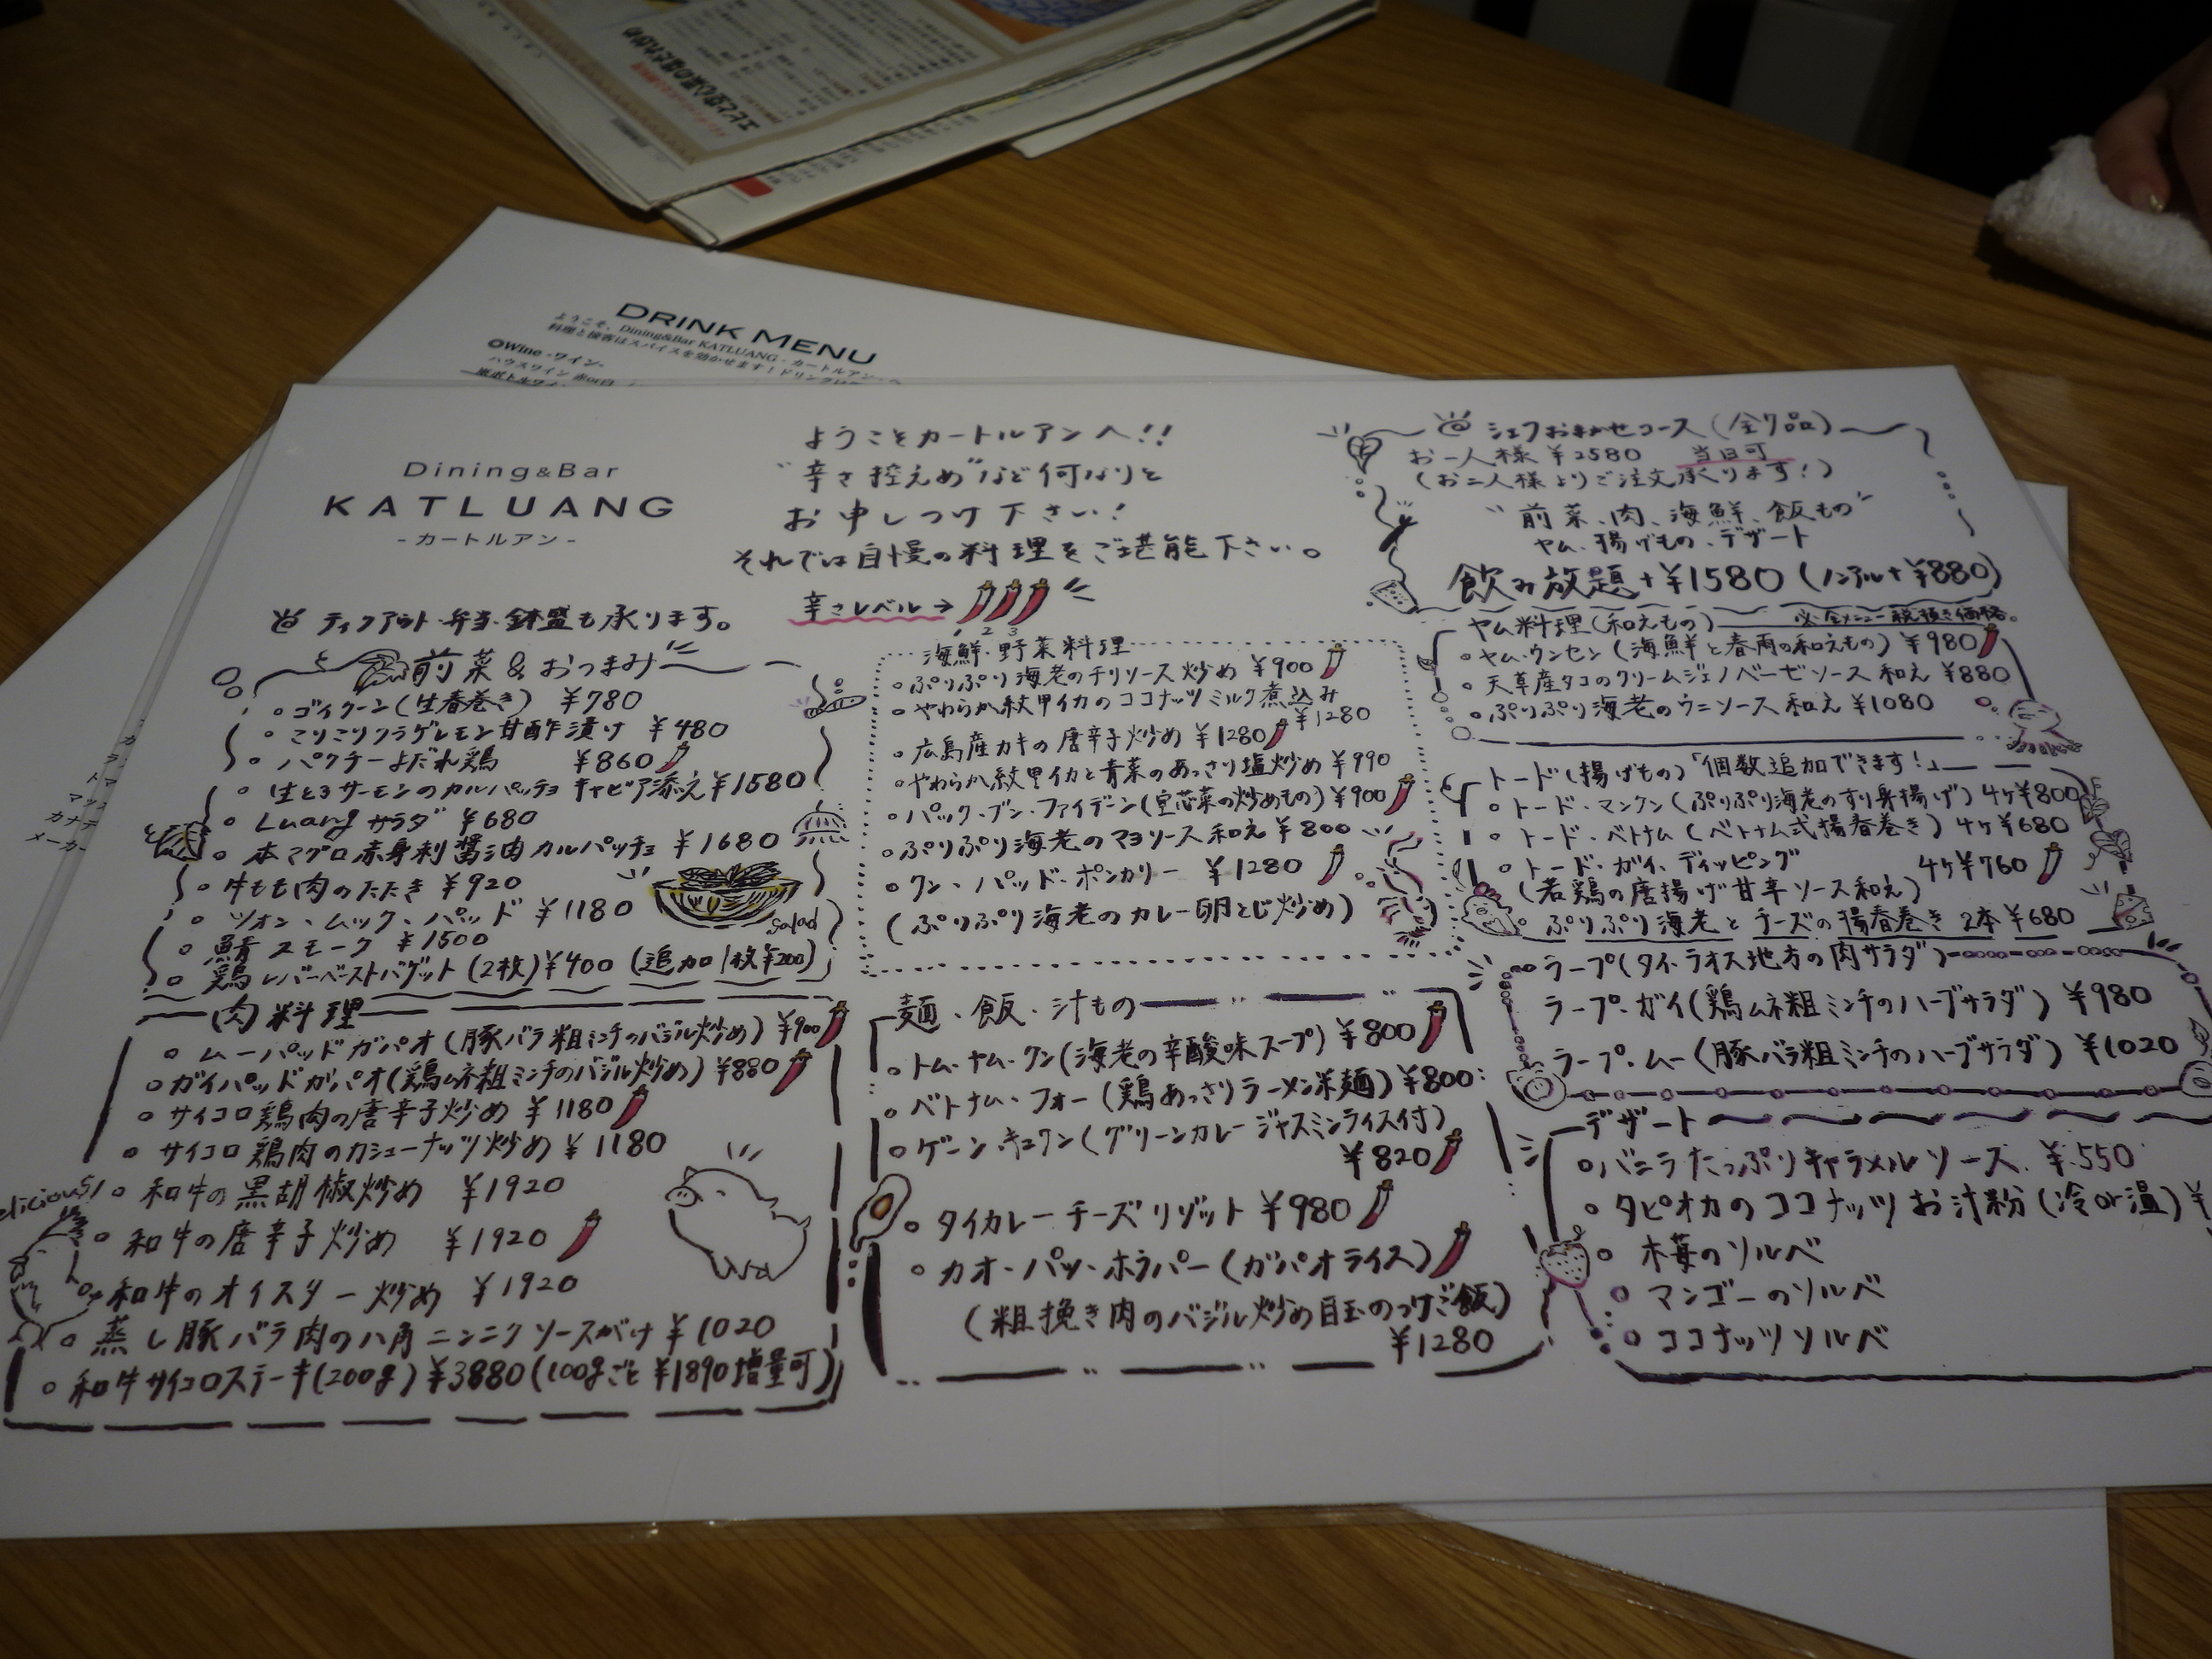 DRINK MENU
ようこそ、Dining&Bar KATLUANG - カートルアン - へ
料理と接客はスパイスを効かせます！ドリンクは
Wine -ワイン-
ハウスワイン 赤or白
Dining&Bar
KATLUANG
-カートルアン-
ようこそカートルアンへ!!
"辛さ控えめ"など何なりと
お申しつけ下さい!
それでは自慢の料理をご堪能下さい。
辛さレベル→
1 2 3
テイクアウト・弁当・鉢盛も承ります。
前菜&おつまみ
ゴイクーン(生春巻き) ¥780
こりこりクラゲレモン甘酢漬け ¥480
パクチーよだれ鶏 ¥860
生とろサーモンのカルパッチョ キャビア添え¥1580
Luangサラダ ¥680
本マグロ赤身刺醤油カルパッチョ ¥1680
牛もも肉のたたき ¥920
ツォン、ムック、パッド ¥1180
鯖スモーク ¥1500
鶏レバーペーストバゲット(2枚)¥400 (追加1枚¥200)
salad
肉料理
ムーパッドガパオ(豚バラ粗ミンチのバジル炒め) ¥900
ガイパッドガパオ(鶏ムネ粗ミンチのバジル炒め) ¥880
サイコロ鶏肉の唐辛子炒め ¥1180
サイコロ鶏肉のカシューナッツ炒め ¥1180
和牛の黒胡椒炒め ¥1920
和牛の唐辛子炒め ¥1920
和牛のオイスター炒め ¥1920
蒸し豚バラ肉の八角ニンニクソースがけ ¥1020
和牛サイコロステーキ(200g) ¥3880(100gごと ¥1890増量可)
elicious!
海鮮・野菜料理
ぷりぷり海老のチリソース炒め ¥900
やわらか紋甲イカのココナッツミルク煮込み
¥1280
広島産カキの唐辛子炒め ¥1280
やわらか紋甲イカと青菜のあっさり塩炒め ¥990
パック・ブン・ファイデーン(空芯菜の炒めもの) ¥900
ぷりぷり海老のマヨソース和え ¥800
クン・パッド・ポンカリー ¥1280
(ぷりぷり海老のカレー卵とじ炒め)
麺、飯、汁もの
トム・ヤム・クン(海老の辛酸味スープ) ¥800
ベトナム・フォー(鶏あっさりラーメン米麺) ¥800
ゲーン・キョワン(グリーンカレー ジャスミンライス付)
¥820
タイカレーチーズリゾット ¥980
カオ・パッ・ホラパー(ガパオライス)
(粗挽き肉のバジル炒め目玉のっけご飯)
¥1280
シェフおまかせコース(全7品)
お一人様 ¥2580 当日可
(お二人様よりご注文承ります!)
"前菜、肉、海鮮、飯もの"
ヤム、揚げもの、デザート
飲み放題+¥1580(ノンアル+¥880)
※全メニュー税抜き価格。
ヤム料理(和えもの)
ヤム・ウンセン(海鮮と春雨の和えもの) ¥980
天草産タコのクリームジェノベーゼソース和え ¥880
ぷりぷり海老のウニソース和え ¥1080
トード(揚げもの)「個数追加できます!」
トード・マンクン(ぷりぷり海老のすり身揚げ) 4ヶ¥800
トード・ベトナム(ベトナム式揚春巻き) 4ヶ¥680
トード・ガイ、ディッピング 4ヶ¥760
(若鶏の唐揚げ甘辛ソース和え)
ぷりぷり海老とチーズの揚春巻き 2本 ¥680
ラープ(タイ・ラオス地方の肉サラダ)
ラープ・ガイ(鶏ムネ粗ミンチのハーブサラダ) ¥980
ラープ・ムー(豚バラ粗ミンチのハーブサラダ) ¥1020
デザート
バニラたっぷりキャラメルソース ¥550
タピオカのココナッツお汁粉(冷or温) ¥
木苺のソルベ
マンゴーのソルベ
ココナッツソルベ